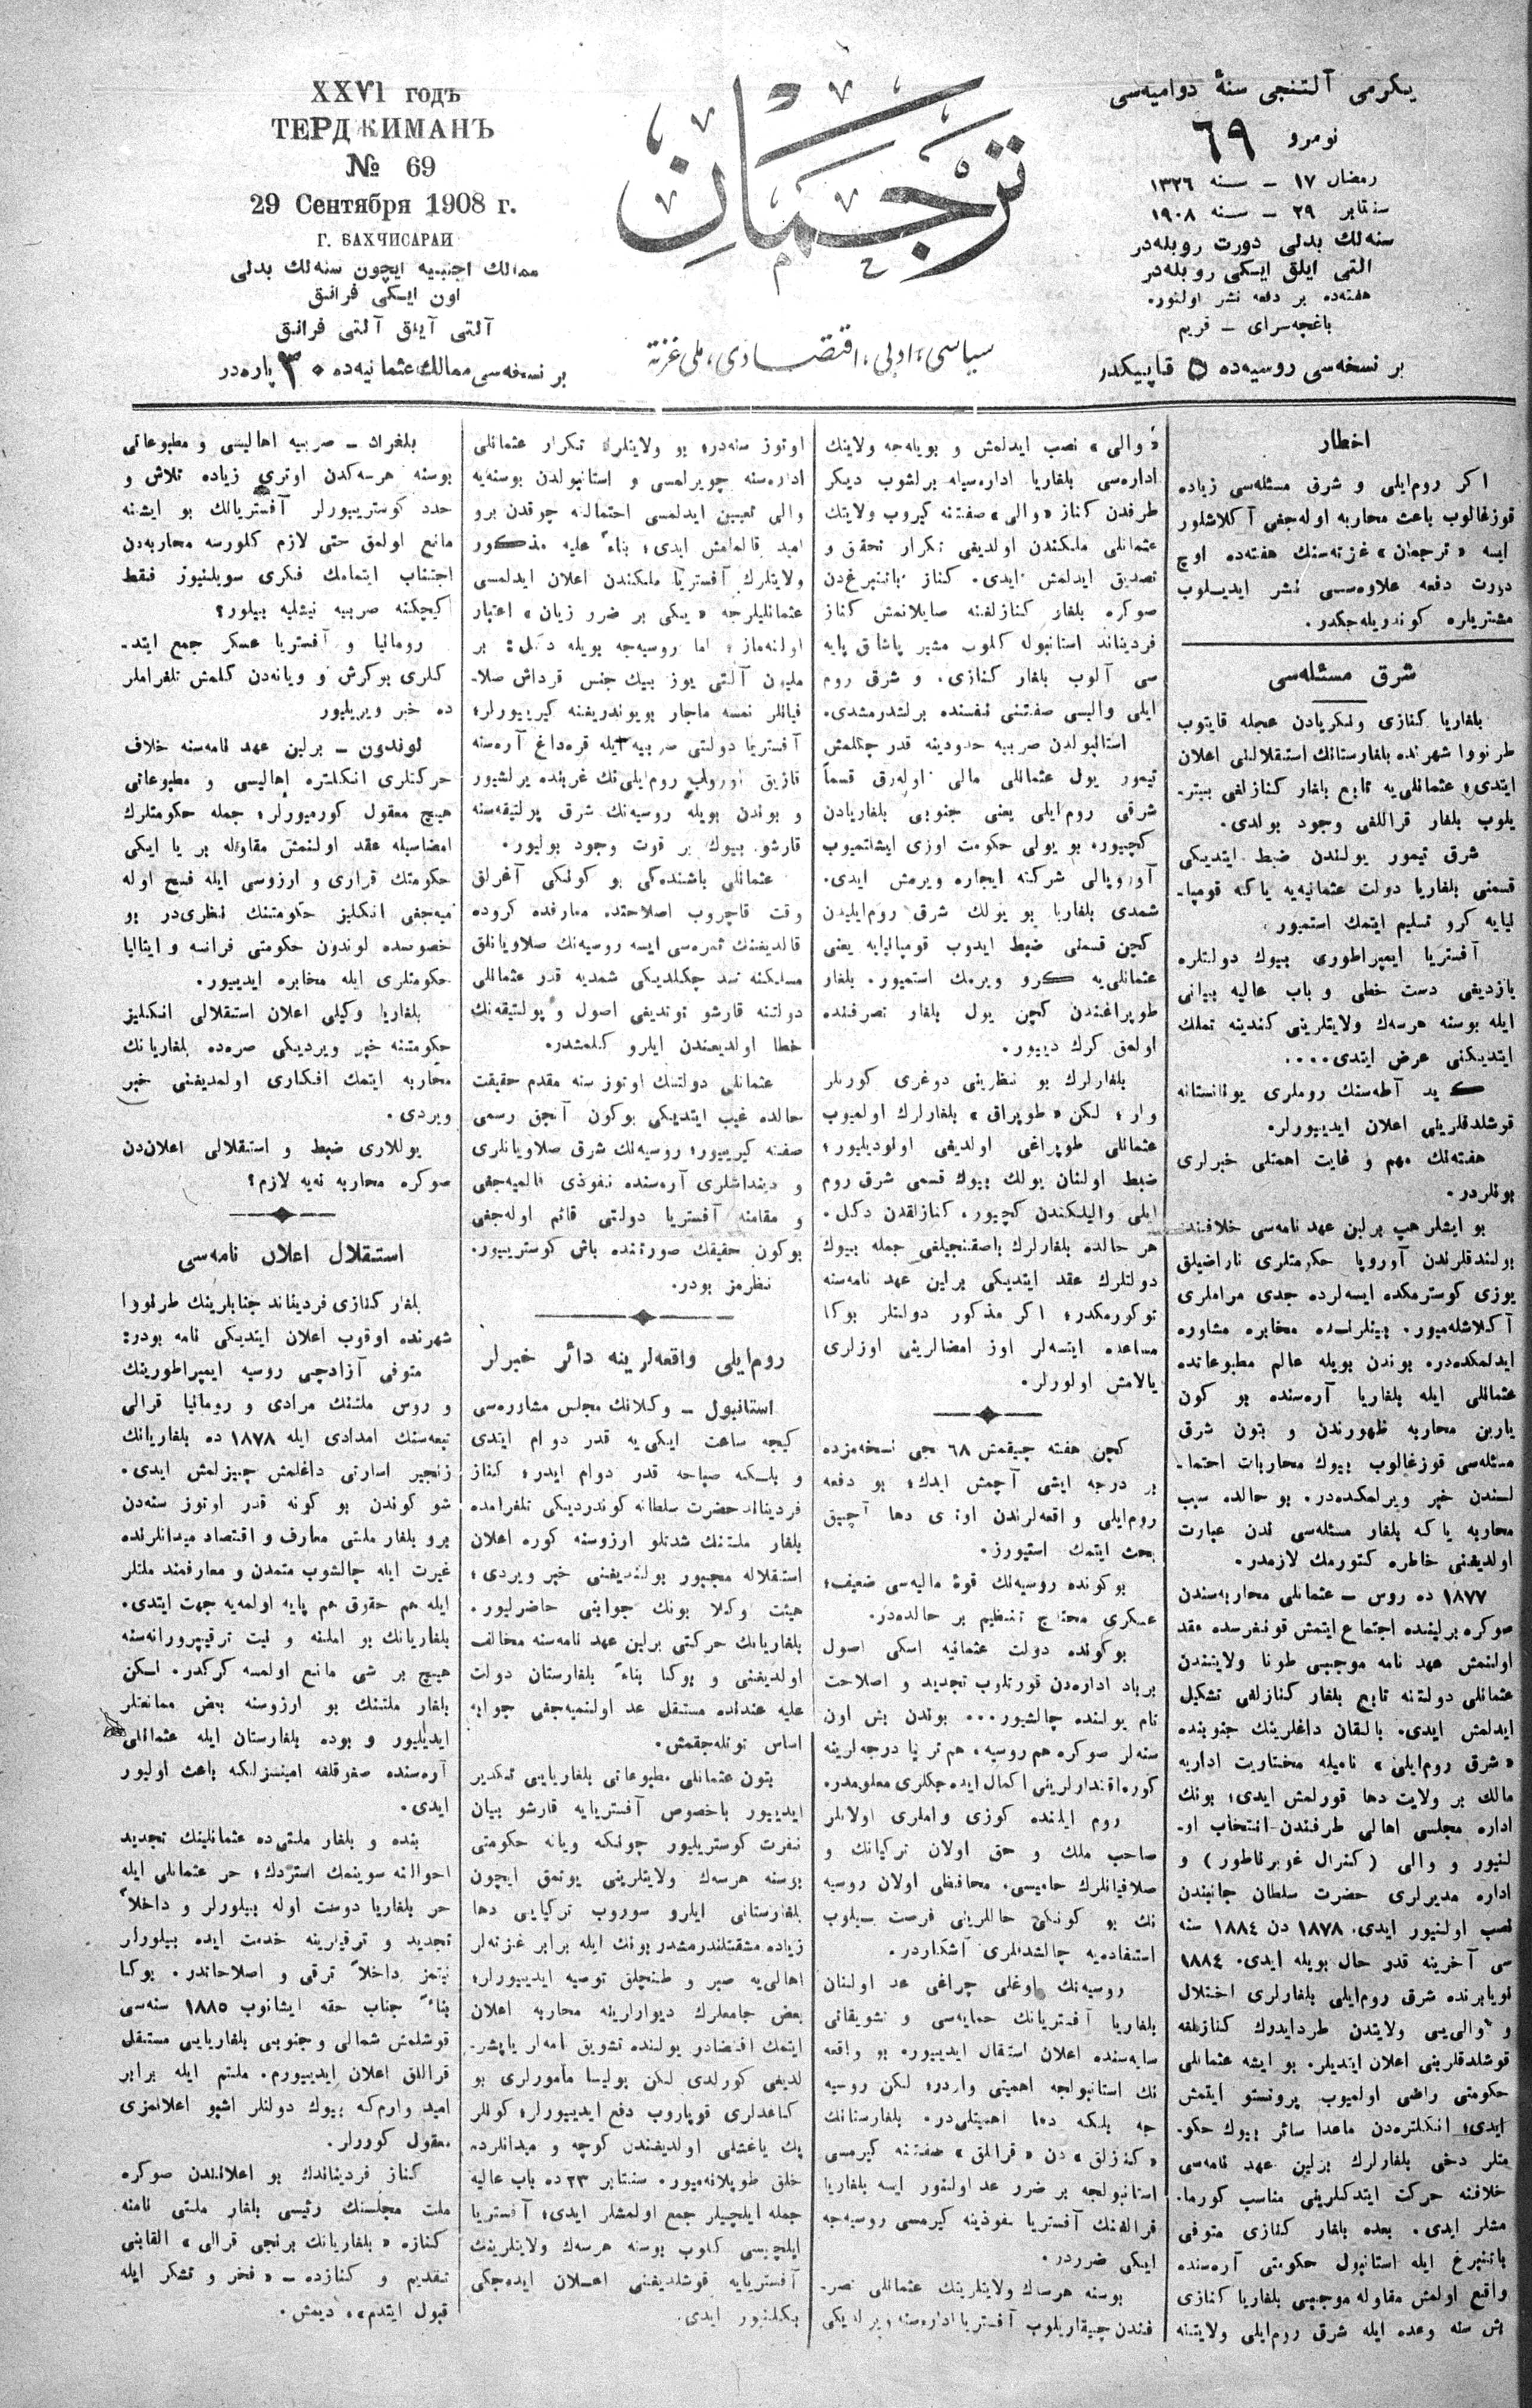 XXVI годъ
ТЕРДЖИМАНЪ
№ 69
29 Сентября 1908 г.
Г. БАХЧИСАРАЙ
ممالك اجنبيه ايچون سنه‌لك بدلى
اون ايكى فرانق
آلتى آيلق آلتى فرانق
بر نسخه‌سى ممالك عثمانيه‌ده ٣٠ پاره‌در
ترجمان
سياسى، ادبى، اقتصادى، ملى غزته
يكرمى آلتنجى سنهٔ دواميه‌سى
نومرو ٦٩
رمضان ١٧ – سنه ١٣٢٦
سنتابر ٢٩ – سنه ١٩٠٨
سنه‌لك بدلى دورت روبله‌در
التى ايلق ايكى روبله‌در
هفته‌ده بر دفعه نشر اولنور.
باغچه‌سراى – قريم
بر نسخه‌سى روسيه‌ده ٥ قاپيكدر
اخطار
اكر روم‌ايلى و شرق مسئله‌سى زياده
قوزغالوب باعث محاربه اوله‌جغى آكلاشلور
ايسه «ترجمان» غزته‌سنك هفته‌ده اوچ
دورت دفعه علاوه‌سى نشر ايديلوب
مشتريلره كوندريله‌جكدر.
شرق مسئله‌سى
بلغاريا كنازى ونكريادن عجله قايتوب
طرنووا شهرنده بلغارستانك استقلالنى اعلان
ايتدى؛ عثمانلى‌يه تابع بلغار كنازلغى بيتر-
يلوب بلغار قراللغى وجود بولدى.
شرق تيمور يولندن ضبط ايتديكى
قسمنى بلغاريا دولت عثمانيه‌يه ياكه قومپا-
نيايه كرو تسليم ايتمك استميور.
آفستريا ايمپراطورى بيوك دولتلره
يازديغى دست خطى و باب عاليه بيانى
ايله بوسنه هرسك ولايتلرينى كندينه تملك
ايتديكنى عرض ايتدى....
كريد آطه‌سنك روملرى يونانستانه
قوشلدقلرينى اعلان ايدييورلر.
هفته‌نك مهم و غايت اهمتلى خبرلرى
بونلردر.
بو ايشلر هپ برلين عهد نامه‌سى خلافنده
بولندقلرندن آوروپا حكومتلرى ناراضيلق
يوزى كوسترمكده ايسه‌لرده جدى مراملرى
آكلاشله‌ميور. بينلرنده مخابره مشاوره
ايدلمكده‌در. بوندن بويله عالم مطبوعاتده
عثمانلى ايله بلغاريا آره‌سنده بو كون
يارين محاربه ظهورندن و بتون شرق
مسئله‌سى قوزغالوب بيوك محاربات احتما-
لندن خبر ويرلمكده‌در. بو حالده سبب
محاربه ياكه بلغار مسئله‌سى ندن عبارت
اولديغنى خاطره كتورمك لازمدر.
١٨٧٧ ده روس – عثمانلى محاربه‌سندن
صوكره برلينده اجتماع ايتمش قونفرسده عقد
اولنمش عهد نامه موجبى طونا ولايتندن
عثمانلى دولتنه تابع بلغار كنازلغى تشكيل
ايدلمش ايدى. بالقان داغلرينك جنوبنده
«شرق روم‌ايلى» ناميله مختاريت اداريه
مالك بر ولايت دها قورلمش ايدى؛ بونك
اداره مجلسى اهالى طرفندن انتخاب او-
لنيور و والى (كنرال غوبرناطور) و
اداره مديرلرى حضرت سلطان جانبندن
نصب اولنيور ايدى. ١٨٧٨ دن ١٨٨٤ سنه
سى آخرينه قدر حال بويله ايدى. ١٨٨٤
نويابرنده شرق روم‌ايلى بلغارلرى اختلال
و والى‌يى ولايتدن طردايدرك كنازلغه
قوشلدقلرينى اعلان ايتديلر. بو ايشه عثمانلى
حكومتى راضى اولميوب پروتستو ايتمش
ايدى؛ انكلتره‌دن ماعدا سائر بيوك حكو-
متلر دخى بلغارلرك برلين عهد نامه‌سى
خلافنه حركت ايتدكلرينى مناسب كورما-
مشلر ايدى. بعده بلغار كنازى متوفى
باتنبرغ ايله استانبول حكومتى آره‌سنده
واقع اولمش مقاوله موجبى بلغاريا كنازى
بش سنه وعده ايله شرق روم‌ايلى ولايتنه
«والى» نصب ايدلمش و بويله‌جه ولاينك
اداره‌سى بلغاريا اداره‌سيله برلشوب ديكر
طرفدن كناز «والى» صفتنه كيروب ولايتك
عثمانلى ملكندن اولديغى تكرار تحقق و
تصديق ايدلمش ايدى. كناز باتنبرغ‌دن
صوكره بلغار كنازلغنه صايلانمش كناز
فرديناند استانبوله كلوب مشير پاشالق پايه
سى آلوب بلغار كنازى. و شرق روم
ايلى واليسى صفتنى نفسنده برلشدرمشدى.
استانبولدن صربيه حدودينه قدر چكلمش
تيمور يول عثمانلى مالى اوله‌رق قسماً
شرقى روم‌ايلى يعنى جنوبى بلغاريادن
كچيور. بو يولى حكومت اوزى ايشلتميوب
آوروپالى شركته ايجاره ويرمش ايدى.
شمدى بلغاريا بو يولك شرق روم‌ايليدن
كچن قسمنى ضبط ايدوب قومپانيايه يعنى
عثمانلى‌يه كرو ويرمك استميور. بلغار
طوپراغندن كچن يول بلغار تصرفنده
اولمق كرك دييور.
بلغارلرك بو نظرينى دوغرى كورنلر
وار؛ لكن «طوپراق» بلغارلرك اولميوب
عثمانلى طوپراغى اولديغى اونوديليور؛
ضبط اولنان يولك بيوك قسمى شرق روم
ايلى واليلكندن كچيور. كنازلقدن دكل.
هر حالده بلغارلرك باصقنجيلغى جمله بيوك
دولتلرك عقد ايتديكى برلين عهد نامه‌سنه
توكورمكدر؛ اكر مذكور دولتلر بوكا
مساعده ايتسه‌لر اوز امضالرينى اوزلرى
يالامش اولورلر.
كچن هفته چيقمش ٦٨ نجى نسخه‌مزده
بر درجه ايشى آچمش ايدك؛ بو دفعه
روم‌ايلى واقعه‌لرندن اوترى دها آچيق
بحث ايتمك استيورز.
بوكونده روسيه‌نك قوهٔ ماليه‌سى ضعيف؛
عسكرى محتاج تنظيم بر حالده‌در.
بوكونده دولت عثمانيه اسكى اصول
برباد اداره‌دن قورتلوب تجديد و اصلاحت
تام يولنده چالشيور... بوندن بش اون
سنه‌لر صوكره هم روسيه، هم تركيا درجه‌لرينه
كوره اقتدارلرينى اكمال ايده‌جكلرى معلومدر.
روم ايلنده كوزى و املرى اولانلر
صاحب ملك و حق اولان تركيانك و
صلافيانلرك حاميسى. محافظى اولان روسيه
نك بو كونكى حاللرينى فرصت بيلوب
استفاده‌يه چالشدقلرى آشكاردر.
روسيه‌نك اوغلى چراغى عد اولنان
بلغاريا آفستريانك حمايه‌سى و تشويقاتى
سايه‌سنده اعلان استقلال ايدييور. بو واقعه
نك استانبولجه اهميتى واردر؛ لكن روسيه
جه بلكه دها اهميتلى‌در. بلغارستانك
«كنازلق» دن «قراللق» صفتنه كيرمسى
استانبولجه بر ضرر عد اولنور ايسه بلغاريا
قراللغنك آفستريا نفوذينه كيرمسى روسيه‌جه
ايكى ضرردر.
بوسنه هرسك ولايتلرينك عثمانلى تصر-
فندن چيقاريلوب آفستريا اداره‌سنه ويرلديكى
اوتوز سنه‌در؛ بو ولايتلرك تكرار عثمانلى
اداره‌سنه چويرلمسى و استانبولدن بوسنه‌يه
والى تعيين ايدلمسى احتمالنه چوقدن برو
اميد قالمامش ايدى؛ بناءً عليه مذكور
ولايتلرك آفستريا ملكندن اعلان ايدلمسى
عثمانليلرجه «يكى بر ضرر زيان» اعتبار
اولنه‌ماز؛ اما روسيه‌جه بويله دكل: بر
مليون آلتى يوز بيك جنس قرداش صلا-
فيانلر نمسه ماجار بويوندريغنه كيرييورلر؛
آفستريا دولتى صربيه ايله قره‌داغ آره‌سنه
قازيق اورولوب روم‌ايلى‌نك غربنده يرلشيور
و بوندن بويله روسيه‌نك شرق پولتيقه‌سنه
قارشو بيوك بر قوت وجود بوليور.
عثمانلى باشنده‌كى بو كونكى آغرلق
وقت قاچروب اصلاحتده معارفده كروده
قالديغنك ثمره‌سى ايسه روسيه‌نك صلاويانلق
مسلكنه سد چكلديكى شمديه قدر عثمانلى
دولتنه قارشو توتديغى اصول و پولتيقه‌نك
خطا اولديغندن ايلرو كلمشدر.
عثمانلى دولتنك اوتوز سنه مقدم حقيقت
حالده غيب ايتديكى بوكون آنجق رسمى
صفته كيرييور؛ روسيه‌نك شرق صلاويانلرى
و دينداشلرى آره‌سنده نفوذى قالميه‌جغى
و مقامنه آفستريا دولتى قائم اوله‌جغى
بوكون حقيقك صورتنده باش كوسترييور.
نظرمز بودر.
روم‌ايلى واقعه‌لرينه دائر خبرلر
استانبول – وكلانك مجلس مشاوره‌سى
كيجه ساعت ايكى‌يه قدر دوام ايتدى
و بلكه صباحه قدر دوام ايدر؛ كناز
فرديناند حضرت سلطانه كوندرديكى تلغرامده
بلغار ملتنك شدتلو ارزوسنه كوره اعلان
استقلاله مجبور بولنديغنى خبر ويردى؛
هيئت وكلا بونك جوابنى حاضرليور.
بلغاريانك حركتى برلين عهد نامه‌سنه مخالف
اولديغنى و بوكا بناءً بلغارستان دولت
عليه عندنده مستقل عد اولنميه‌جغى جوابه
اساس توتله‌جقمش.
بتون عثمانلى مطبوعاتى بلغاريايى تنكدير
ايدييور باخصوص آفستريايه قارشو بيان
نفرت كوستريليور چونكه ويانه حكومتى
بوسنه هرسك ولايتلرينى يوتمق ايچون
بلغارستانى ايلرو سوروب تركيايى دها
زياده مشقتلندرمشدر بونك ايله برابر غزته‌لر
اهالى‌يه صبر و طنچلق توصيه ايدييورلر؛
بعض جامعلرك ديوارلرينه محاربه اعلان
ايتمك اقتضادر يولنده تشويق نامه‌لر ياپشر-
لديغى كورلدى لكن پوليسا مأمورلرى بو
كاغدلرى قوپاروب دفع ايدييورلر؛ كونلر
پك ياغشلى اولديغندن كوچه و ميدانلرده
خلق طوپلانه‌ميور. سنتابر ٢٣ ده باب عاليه
جمله ايلچيلر جمع اولمشلر ايدى؛ آفستريا
ايلچيسى كلوب بوسنه هرسك ولايتلرينك
آفستريايه قوشلديغنى اعلان ايده‌جكى
بكلنيور ايدى.
بلغراد – صربيه اهاليسى و مطبوعاتى
بوسنه هرسه‌كدن اوترى زياده تلاش و
حدد كوسترييورلر آفستريالك بو ايشنه
مانع اولمق حتى لازم كلورسه محاربه‌دن
اجتناب ايتمامك فكرى سويلنيور فقط
كيچكنه صربيه نيشليه بيلور؟
رومانيا و آفستريا عسكر جمع ايتد-
كلرى بوكرش و ويانه‌دن كلمش تلغراملر
ده خبر ويريليور
لوندون – برلين عهد نامه‌سنه خلاف
حركتلرى انكلتره اهاليسى و مطبوعاتى
هيچ معقول كورميورلر؛ جمله حكومتلرك
امضاسيله عقد اولنمش مقاوله بر يا ايكى
حكومتك قرارى و ارزوسى ايله فسخ اوله
ميه‌جغى انكليز حكومتنك نظرى‌در بو
خصوصده لوندون حكومتى فرانسه و ايتاليا
حكومتلرى ايله مخابره ايدييور.
بلغاريا وكيلى اعلان استقلالى انكليز
حكومتنه خبر ويرديكى صره‌ده بلغاريانك
محاربه ايتمك افكارى اولمديغنى خبر
ويردى.
يوللارى ضبط و استقلالى اعلان‌دن
صوكره محاربه نه‌يه لازم؟
استقلال اعلان نامه‌سى
بلغار كنازى فرديناند جنابلرينك طرنووا
شهرنده اوقوب اعلان ايتديكى نامه بودر:
متوفى آزادچى روسيه ايمپراطورينك
و روس ملتنك مرادى و رومانيا قرالى
تبعه‌سنك امدادى ايله ١٨٧٨ ده بلغاريانك
زنجير اسارتى داغلمش چيزلمش ايدى.
شو كوندن بو كونه قدر اوتوز سنه‌دن
برو بلغار ملتى معارف و اقتصاد ميدانلرنده
غيرت ايله چالشوب متمدن و معارفمند ملتلر
ايله هم حقوق هم پايه اولمه‌يه جهت ايتدى.
بلغاريانك بو املنه و نيت ترقيپرورانه‌سنه
هيچ بر شى مانع اولمسه كركدر. لكن
بلغار ملتنك بو ارزوسنه بعض ممانعتلر
ايديليور و بوده بلغارستان ايله عثمانلى
آره‌سنده صغوقلغه امينسزلكه باعث اوليور
ايدى.
بنده و بلغار ملتى‌ده عثمانلينك تجديد
احوالنه سوينمك استردك؛ حر عثمانلى ايله
حر بلغاريا دوست اوله بيلورلر و داخلاً
تجديد و ترقيلرينه خدمت ايده بيلورلر
نيتمز داخلاً ترقى و اصلاحاتدر. بوكا
بناءً جناب حقه ايشانوب ١٨٨٥ سنه‌سى
قوشلمش شمالى و جنوبى بلغاريايى مستقل
قراللق اعلان ايدييورم. ملتم ايله برابر
اميد وارم‌كه بيوك دولتلر اشبو اعلانمزى
معقول كورلر.
كناز فرديناندك بو اعلانندن صوكره
ملت مجلسنك رئيسى بلغار ملتى نامنه
كنازه «بلغاريانك برنجى قرالى» القابنى
تقديم و كنازده – «فخر و تشكر ايله
قبول ايتدم»، ديمش.